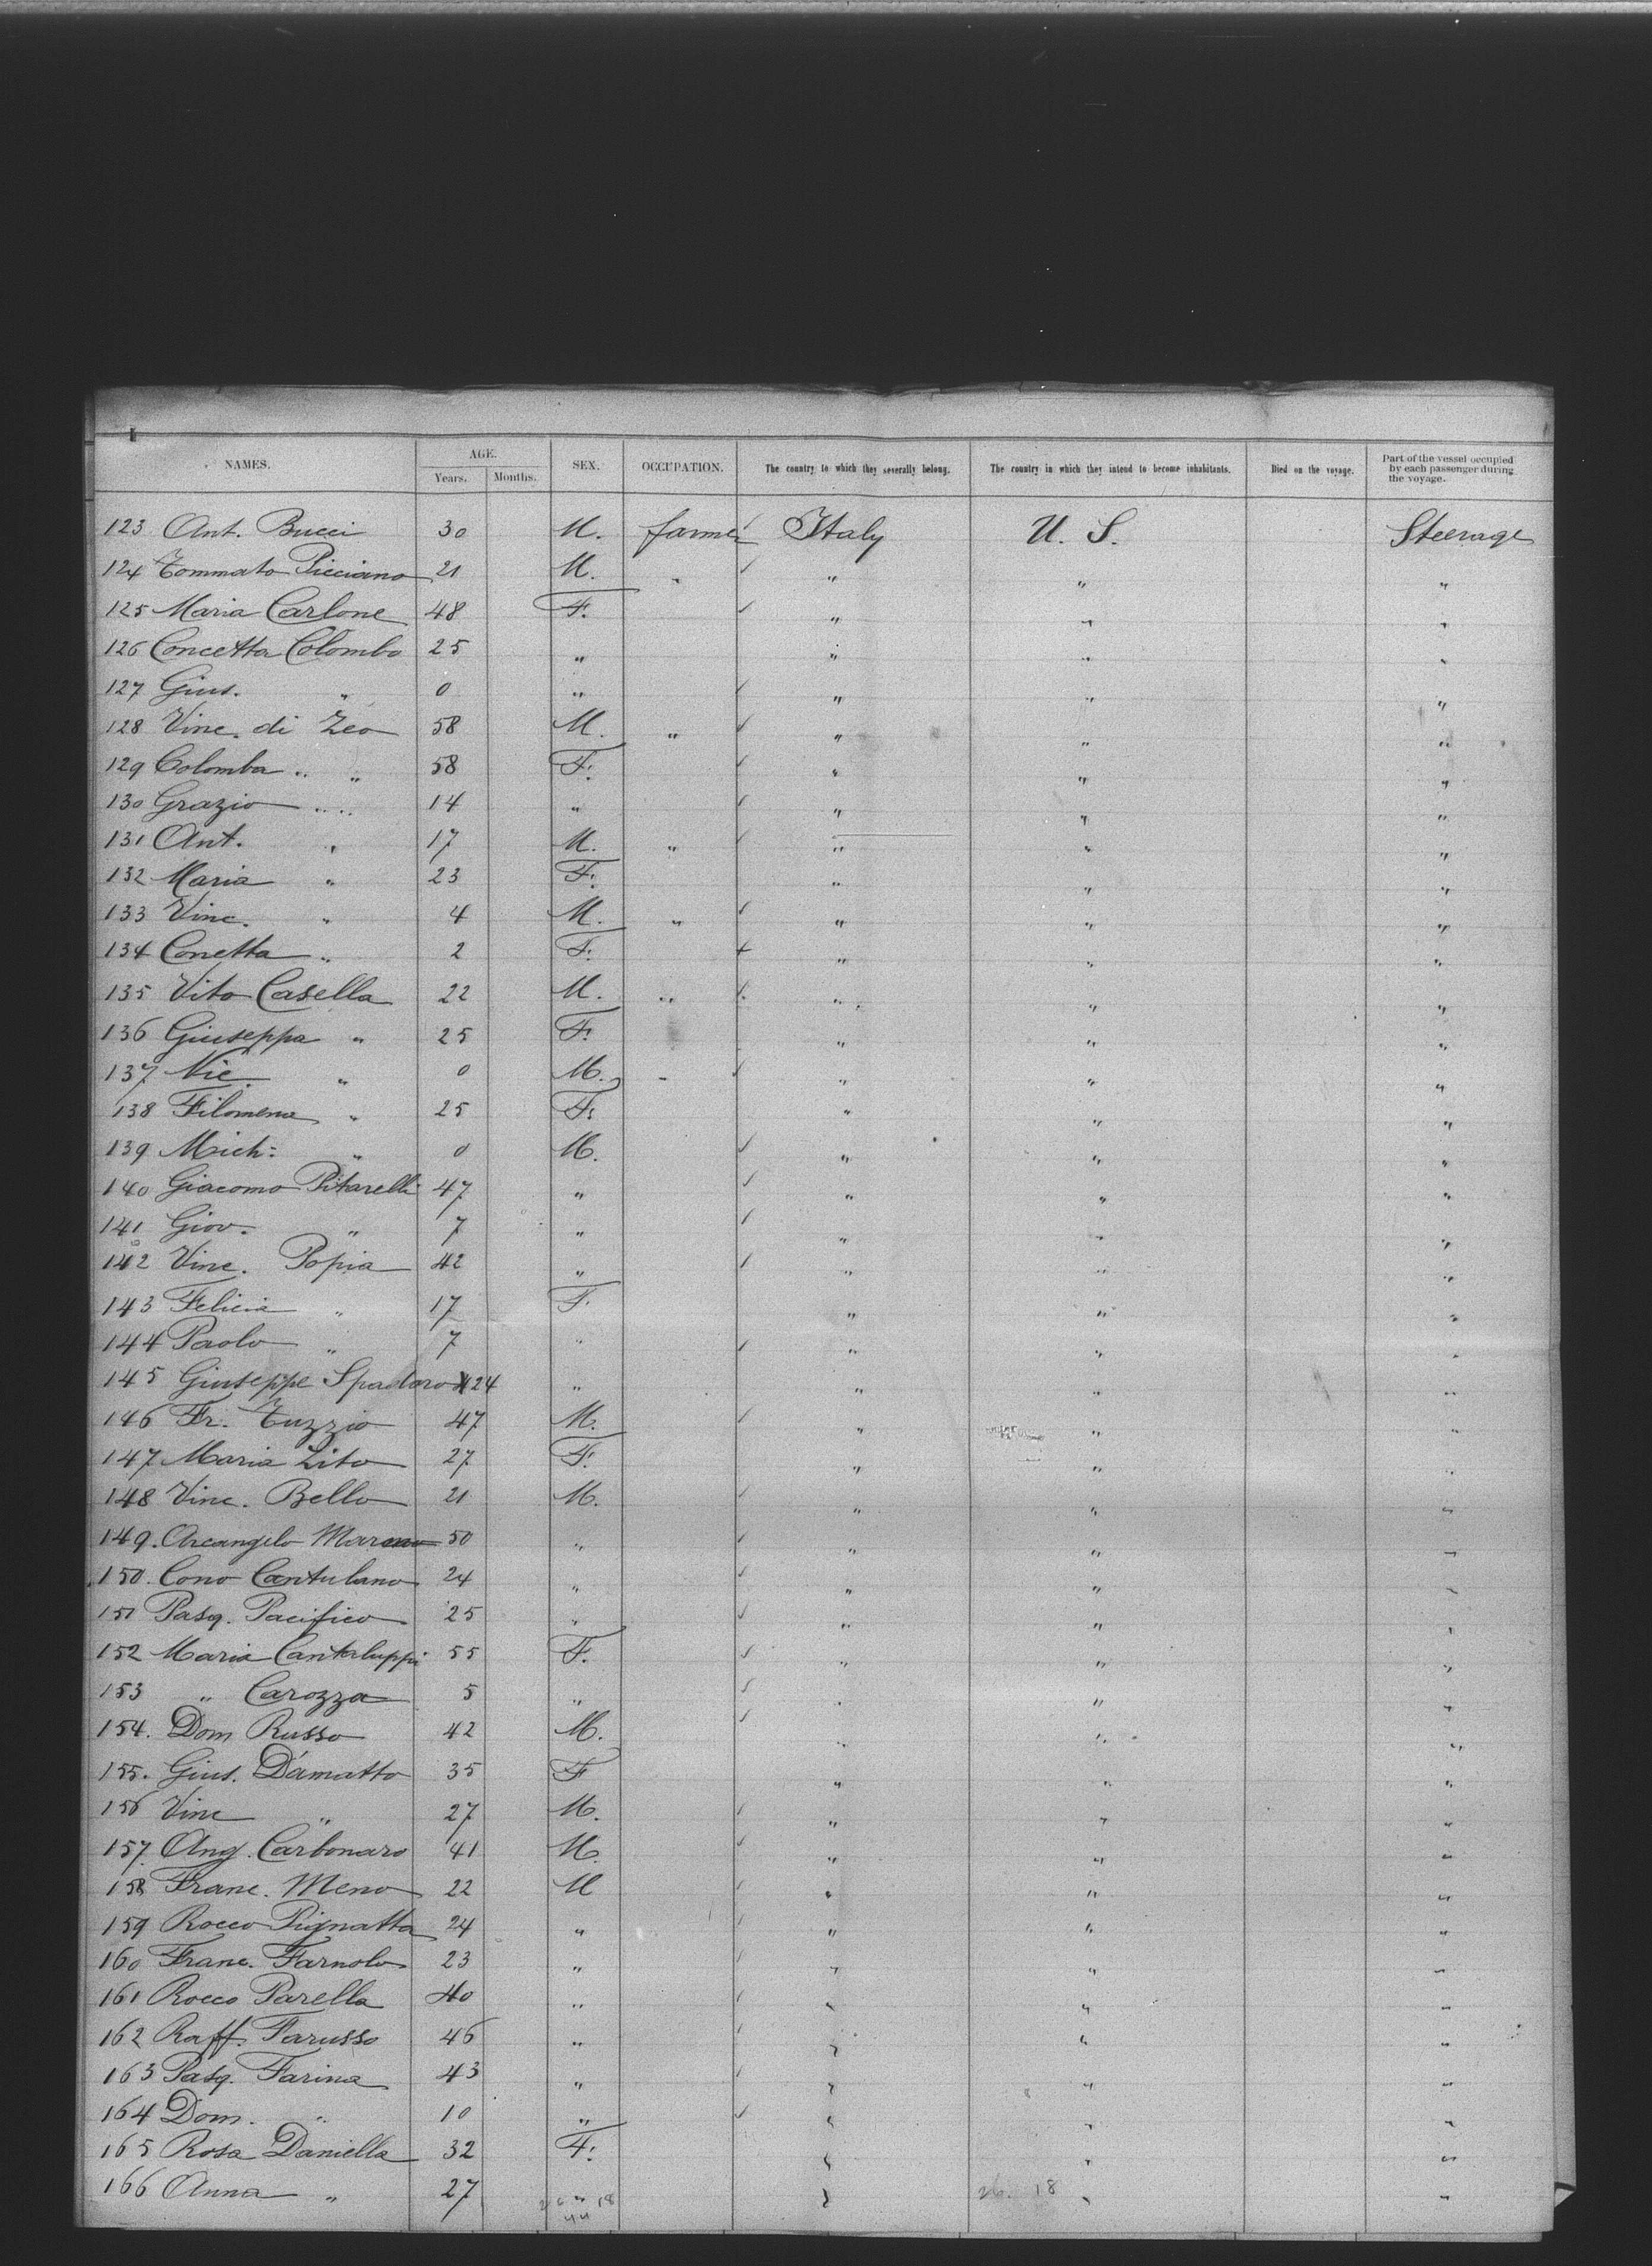 NAMES. AGE. Years. Months. SEX. OCCUPATION. The country to which they severally belong. The country in which they intend to become inhabitants. Died on the voyage. Part of the vessel occupied by each passenger during the voyage.
123 Ant. Bucci 30 M. farmer Italy U. S. Steerage
124 Tommato Picciano 21 M. " " " "
125 Maria Carlone 48 F. " " "
126 Concetta Colombo 25 " " " "
127 Gius. " 0 " " " "
128 Vinc. di Zeo 58 M. " " " "
129 Colomba " " 58 F. " " "
130 Grazio " " 14 " " " "
131 Ant. " 17 M. " " " "
132 Maria " 23 F. " " "
133 Vinc. " 4 M. " " " "
134 Conetta " 2 F. " " "
135 Vito Casella 22 M. " " " "
136 Giuseppa " 25 F. " " "
137 Nic. " 0 M. " " " "
138 Filomena " 25 F. " " "
139 Mich: " 0 M. " " "
140 Giacomo Pitarelli 47 " " " "
141 Giov. " 7 " " " "
142 Vinc. Popia 42 " " " "
143 Felicia " 17 F. " " "
144 Paolo " 7 " " " "
145 Giuseppe Spadaro 24 " " " "
146 Fr. Tuzzio 47 M. " " "
147 Maria Zito 27 F. " " "
148 Vinc. Bello 21 M. " " "
149. Arcangelo 50 " " " "
150. Cono Cantulano 24 " " " "
151 Pasq. Pacifico 25 " " " "
152 Maria Cantaluppi 55 F. " " "
153 " Carozza 5 " " " "
154. Dom Russo 42 M. " " "
155. Gius. D'amatto 35 F " " "
156 Vinc " 27 M. " " "
157. Ang. Carbonaro 41 M. " " "
158 Franc. Meno 22 M " " "
159 Rocco Pignatta 24 " " " "
160 Franc. Farnolo 23 " " " "
161 Rocco Parella 40 " " " "
162 Raff. Farusso 46 " " " "
163 Pasq. Farina 43 " " " "
164 Dom. " 10 " " " "
165 Rosa Daniella 32 F. " " "
166 Anna " 27 " " "
26 18
44
26. 18